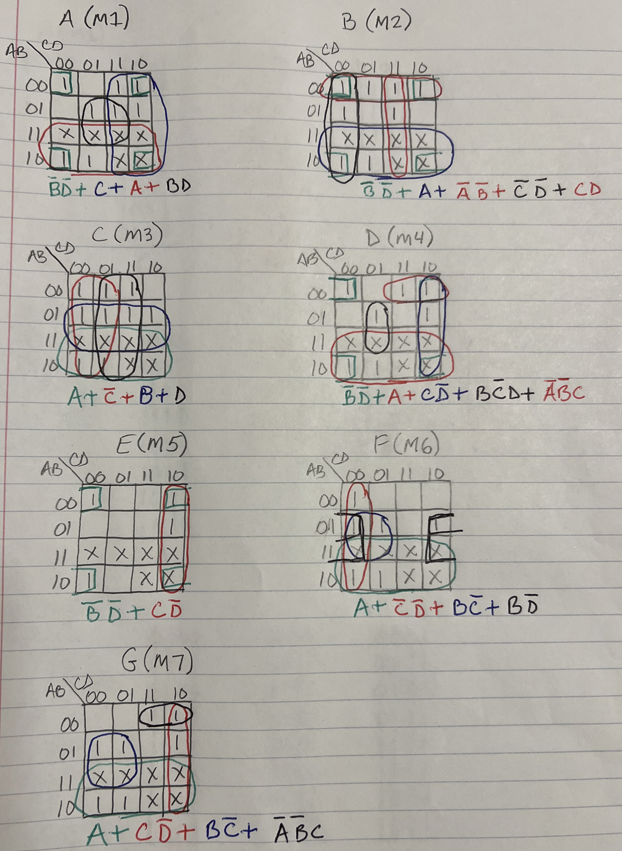 A (M1) B (M2)
AB CD AB CD
00 01 11 10 00 01 11 10
00 1 1 1 00 1 1 1 1
01 1 1 1 01 1 1
11 X X X X 11 X X X X
10 1 1 X X 10 1 1 X X
B̅D̅ + C + A + BD B̅ D̅ + A + A̅ B̅ + C̅ D̅ + CD
C (M3) D (M4)
AB CD AB CD
00 01 11 10 00 01 11 10
00 1 1 1 00 1 1 1
01 1 1 1 1 01 1 1
11 X X X X 11 X X X X
10 1 1 X X 10 1 1 X X
A + C̅ + B + D B̅D̅ + A + CD̅ + BC̅D + A̅B̅C
E (M5) F (M6)
AB CD AB CD
00 01 11 10 00 01 11 10
00 1 1 00 1
01 1 01 1 1 1
11 X X X X 11 X X X X
10 1 X X 10 1 1 X X
B̅ D̅ + CD̅ A + C̅ D̅ + BC̅ + BD̅
G (M7)
AB CD
00 01 11 10
00 1 1
01 1 1 1
11 X X X X
10 1 1 X X
A + CD̅ + BC̅ + A̅B̅C